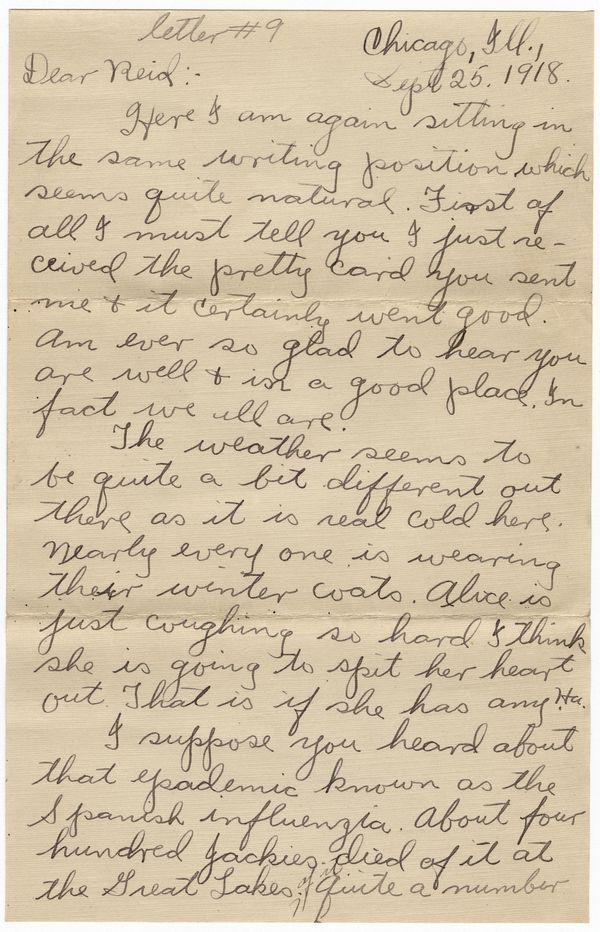 letter #9
Chicago, Ill.,
Dear Reid:-
Sept 25. 1918.
Here I am again sitting in
the same writing position which
seems quite natural. First of
all I must tell you I just re-
ceived the pretty card you sent
me & it certainly went good.
Am ever so glad to hear you
are well & in a good place. In
fact we all are.
The weather seems to
be quite a bit different out
there as it is real cold here.
Nearly every one is wearing
their winter coats. Alice is
just coughing so hard I think
she is going to spit her heart
out. That is if she has any Ha.
I suppose you heard about
that epademic known as the
Spanish influenzia. About four
hundred Jackies died of it at
the Great Lakes. Quite a number